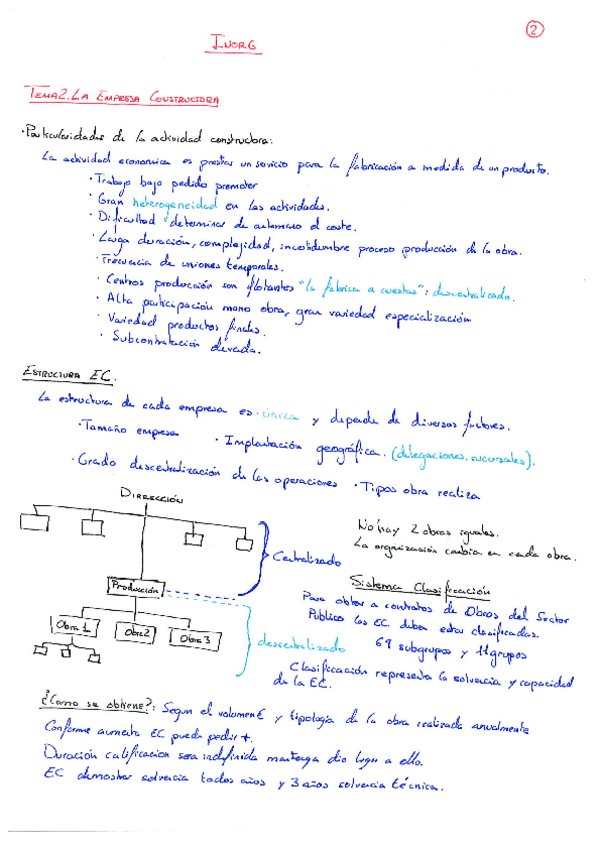 2
INORG
TEMA2. LA EMPRESA CONSTRUCTORA
· Particularidades de la actividad constructora:
La actividad economica es prestar un servicio para la fabricación a medida de un producto.
· Trabajo bajo pedido promotor
· Gran heterogeneidad en las actividades.
· Dificultad determinar de antemano el coste.
· Larga duración, complejidad, incertidumbre proceso producción de la obra.
· Frecuencia de uniones temporales.
· Centros producción son flotantes "la fabrica a cuestas": descentralizado.
· Alta participación mano obra, gran variedad especialización
· Variedad productos finales.
· Subcontratación elevada.
ESTRUCTURA EC.
La estructura de cada empresa es única y depende de diversos factores.
· Tamaño empresa · Implantación geográfica. (delegaciones, sucursales).
· Grado descentralización de las operaciones · Tipos obra realiza
DIRRECCIÓN
No hay 2 obras iguales.
La organización cambia en cada obra.
Centralizado
Producción
Obra 1
Obra 2
Obra 3
descentralizado
Sistema Clasificación
Para obtar a contratos de Obras del Sector
Público las EC deben estar clasificadas.
69 subgrupos y 11 grupos
Clasificación representa la solvencia y capacidad
de la EC.
¿Como se obtiene?: Segun el volumen € y tipología de la obra realizada anualmente
Conforme aumenta EC puede pedir +.
Duración calificación sera indefinida mantenga dio lugar a ello.
EC demostrar solvencia todos años y 3 años solvencia técnica.